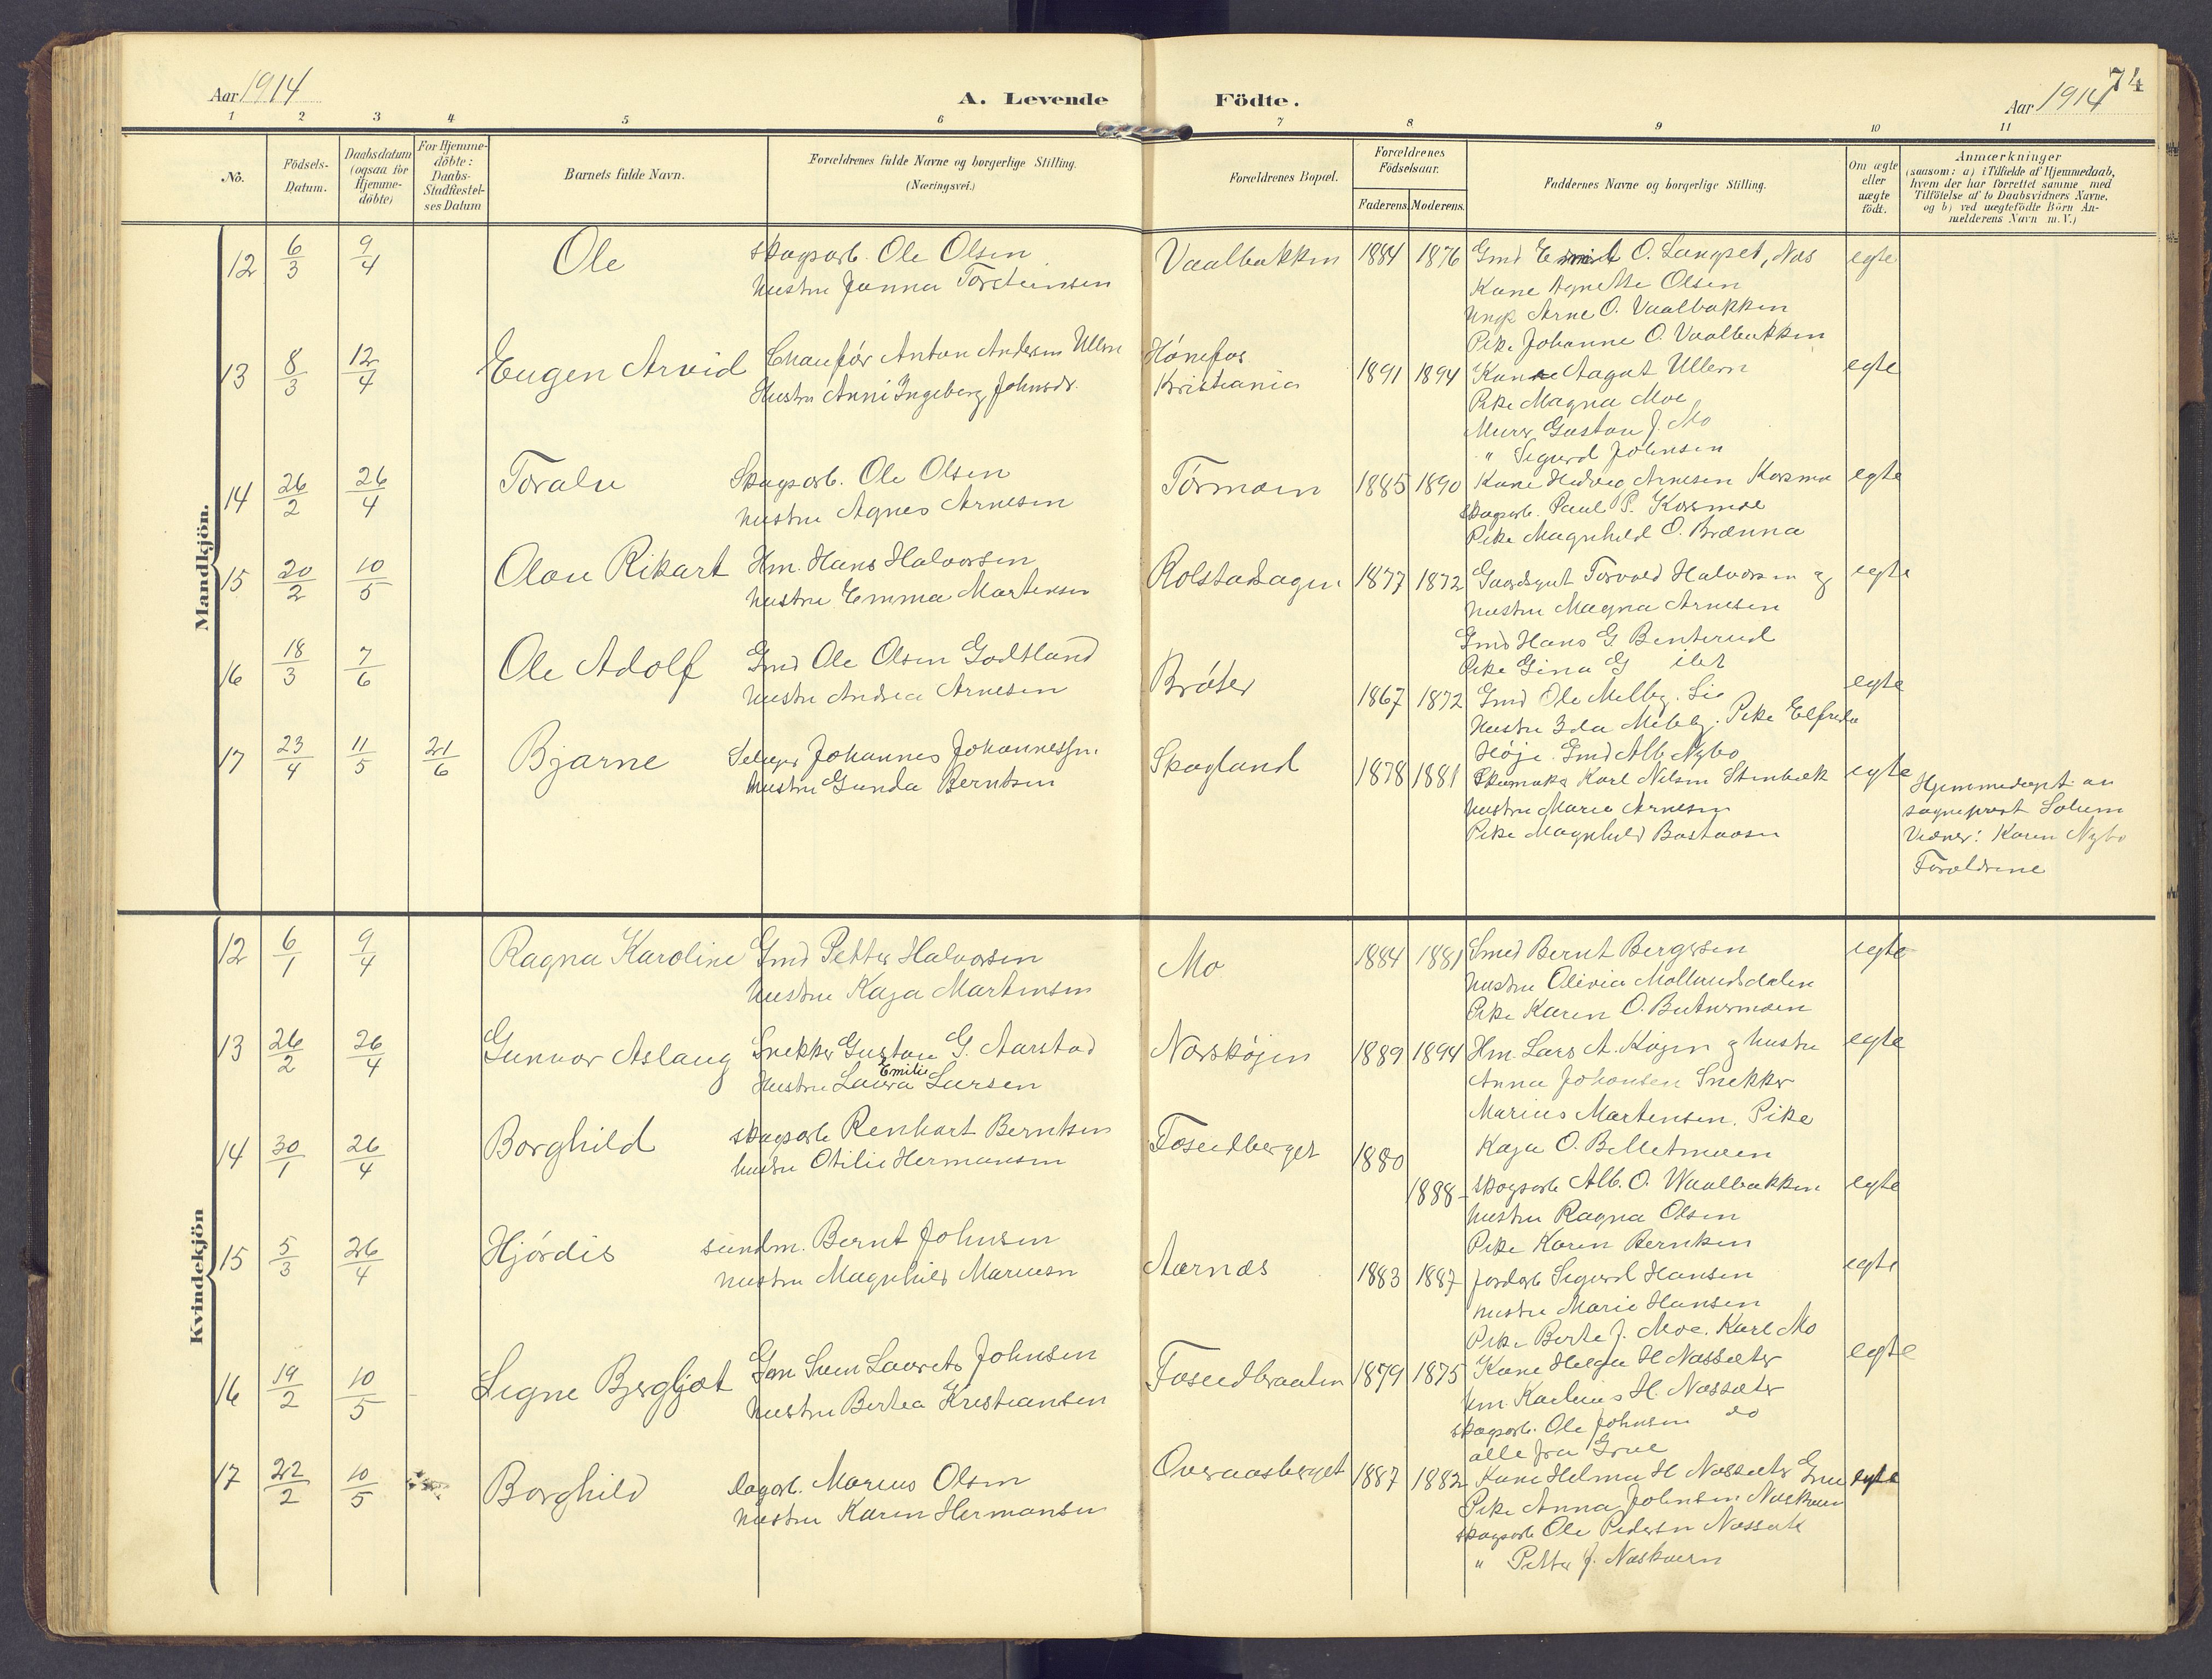 Aar 1914
A. Levende Födte.
Aar 1914
74
1 2 3 4 5 6 7 8 9 10 11
No.
Födsels-
Datum.
Daabsdatum
(ogsaa for
Hjemme-
döbte)
For Hjemme-
döbte:
Daabs-
Stadfæstel-
ses Datum
Barnets fulde Navn.
Forældrenes fulde Navne og borgerlige Stilling.
(Næringsvei.)
Forældrenes Bopæl.
Forældrenes
Födselsaar.
Faderens. Moderens.
Faddernes Navne og borgerlige Stilling.
Om ægte
eller
uægte
födt.
Anmærkninger
(saasom: a) i Tilfælde af Hjemmedaab,
hvem der har forrettet samme med
Tilföielse af to Daabsvidners Navne.
og b) ved uægtefödte Börn An-
melderens Navn m. V.)
Mandkjön.
12 6/3 9/4 Ole
Skogsarb. Ole Olsen
hustru Janna Torsteinsen
Vaalbakken 1884 1876
Gmd O. Langset, Næs
Kone Agnethe Olsen
Ungk Arne O. Vaalbakken
Pike Johanne O. Vaalbakken
egte
13 8/3 12/4 Eugen Arvid
Chauffør Anton Andersen Ullern
Hustru Anni Ingeborg Johnsdr.
Hønefos
Kristiania 1891 1894
Kone Aagot Ullern
Pike Magna Moe
Murer Gustav J. Mo
" Sigurd Johnsen
egte
14 26/2 26/4 Toralv
Skogsarb. Ole Olsen
hustru Agnes Arnesen
Tørmoen 1885 1890
Kone Hedvig Arnesen Korsmo
skogsarb. Paul P. Korsmoe
Pike Magnhild O. Brænna
egte
15 20/2 10/5 Olav Rikart
Hm. Hans Halvorsen
hustru Emma Martensen
Rolstadhagen 1877 1872
Gaardsgut Torvald Halvorsen og
hustru Magna Arnesen
Gmd Hans G Benterud
Pike Gina G ibt
egte
16 18/3 7/6 Ole Adolf
Gmd Ole Olsen Godtland
hustru Andrea Arnesen
Brøter 1867 1872
Gmd Ole Melby. Lie
Hustru Ida Melby. Pike Elfrida
Høje. Gmd Alb. Nybo
egte
17 23/4 11/5 21/6 Bjarne
Selveier Johannes Johannessen.
hustru Gunda Berntsen
Skogland 1878 1881
Skomaker Karl Nilsen Stenbæk
hustru Marie Arnesen
Pike Magnhild Bastavsen
egte
Hjemmedøpt av
sogneprest Solum
Vidner: Karen Nybo
Forældrene
Kvindekjön
12 6/1 9/4 Ragna Karoline
Gmd Petter Halvorsen
hustru Kaja Martinsen
Mo 1884 1881
Smed Bernt Bergersen
hustru Olivia Mollunddalen
Pike Karen O. Buturmoen
egte
13 26/2 26/4 Gunvor Aslaug
Snekker Gustav G. Aarstad
Emilie
Hustru Laura Larsen
Norskøjen 1889 1894
Hm. Lars A. Køjen og hustru
Anna Johansen Snekker
Marius Martensen. Pike
Kaja O. Belletmoen
egte
14 30/1 26/4 Borghild
skogsarb Renhart Berntsen
hustru Otilie Hermansen
Foseidberget 1880 1888
skogsarb Alb. O. Waalbakken
hustru Ragna Olsen
Pike Karen Berntsen
egte
15 5/3 26/4 Hjørdis
sundm. Bernt Johnsen
hustru Magnhild Mariusen
Aarnæs 1883 1887
jordarb Sigurd Hansen
hustru Marie Hansen
Pike Berte J. Moe. Karl Mo
egte
16 19/2 10/5 Signe Bjergljot
Gm Sven Laurits Johnsen
hustru Bertea Kristiansen
Foseidbraaten 1879 1875
Kone Helga H Næssæter
Um. Karlius H. Næssæter
skogsarb. Ole Johnsen do
alle fra Grue
egte
17 22/2 10/5 Borghild
Dagarb. Marius Olsen
hustru Karen Hermansen
Overaasberget 1887 1882
Kone Helma H Næssæter Grue
Pike Anna Johnsen Næskvern
skogsarb Ole Pedersen Næssæt
" Petter J. Næskvern
egte